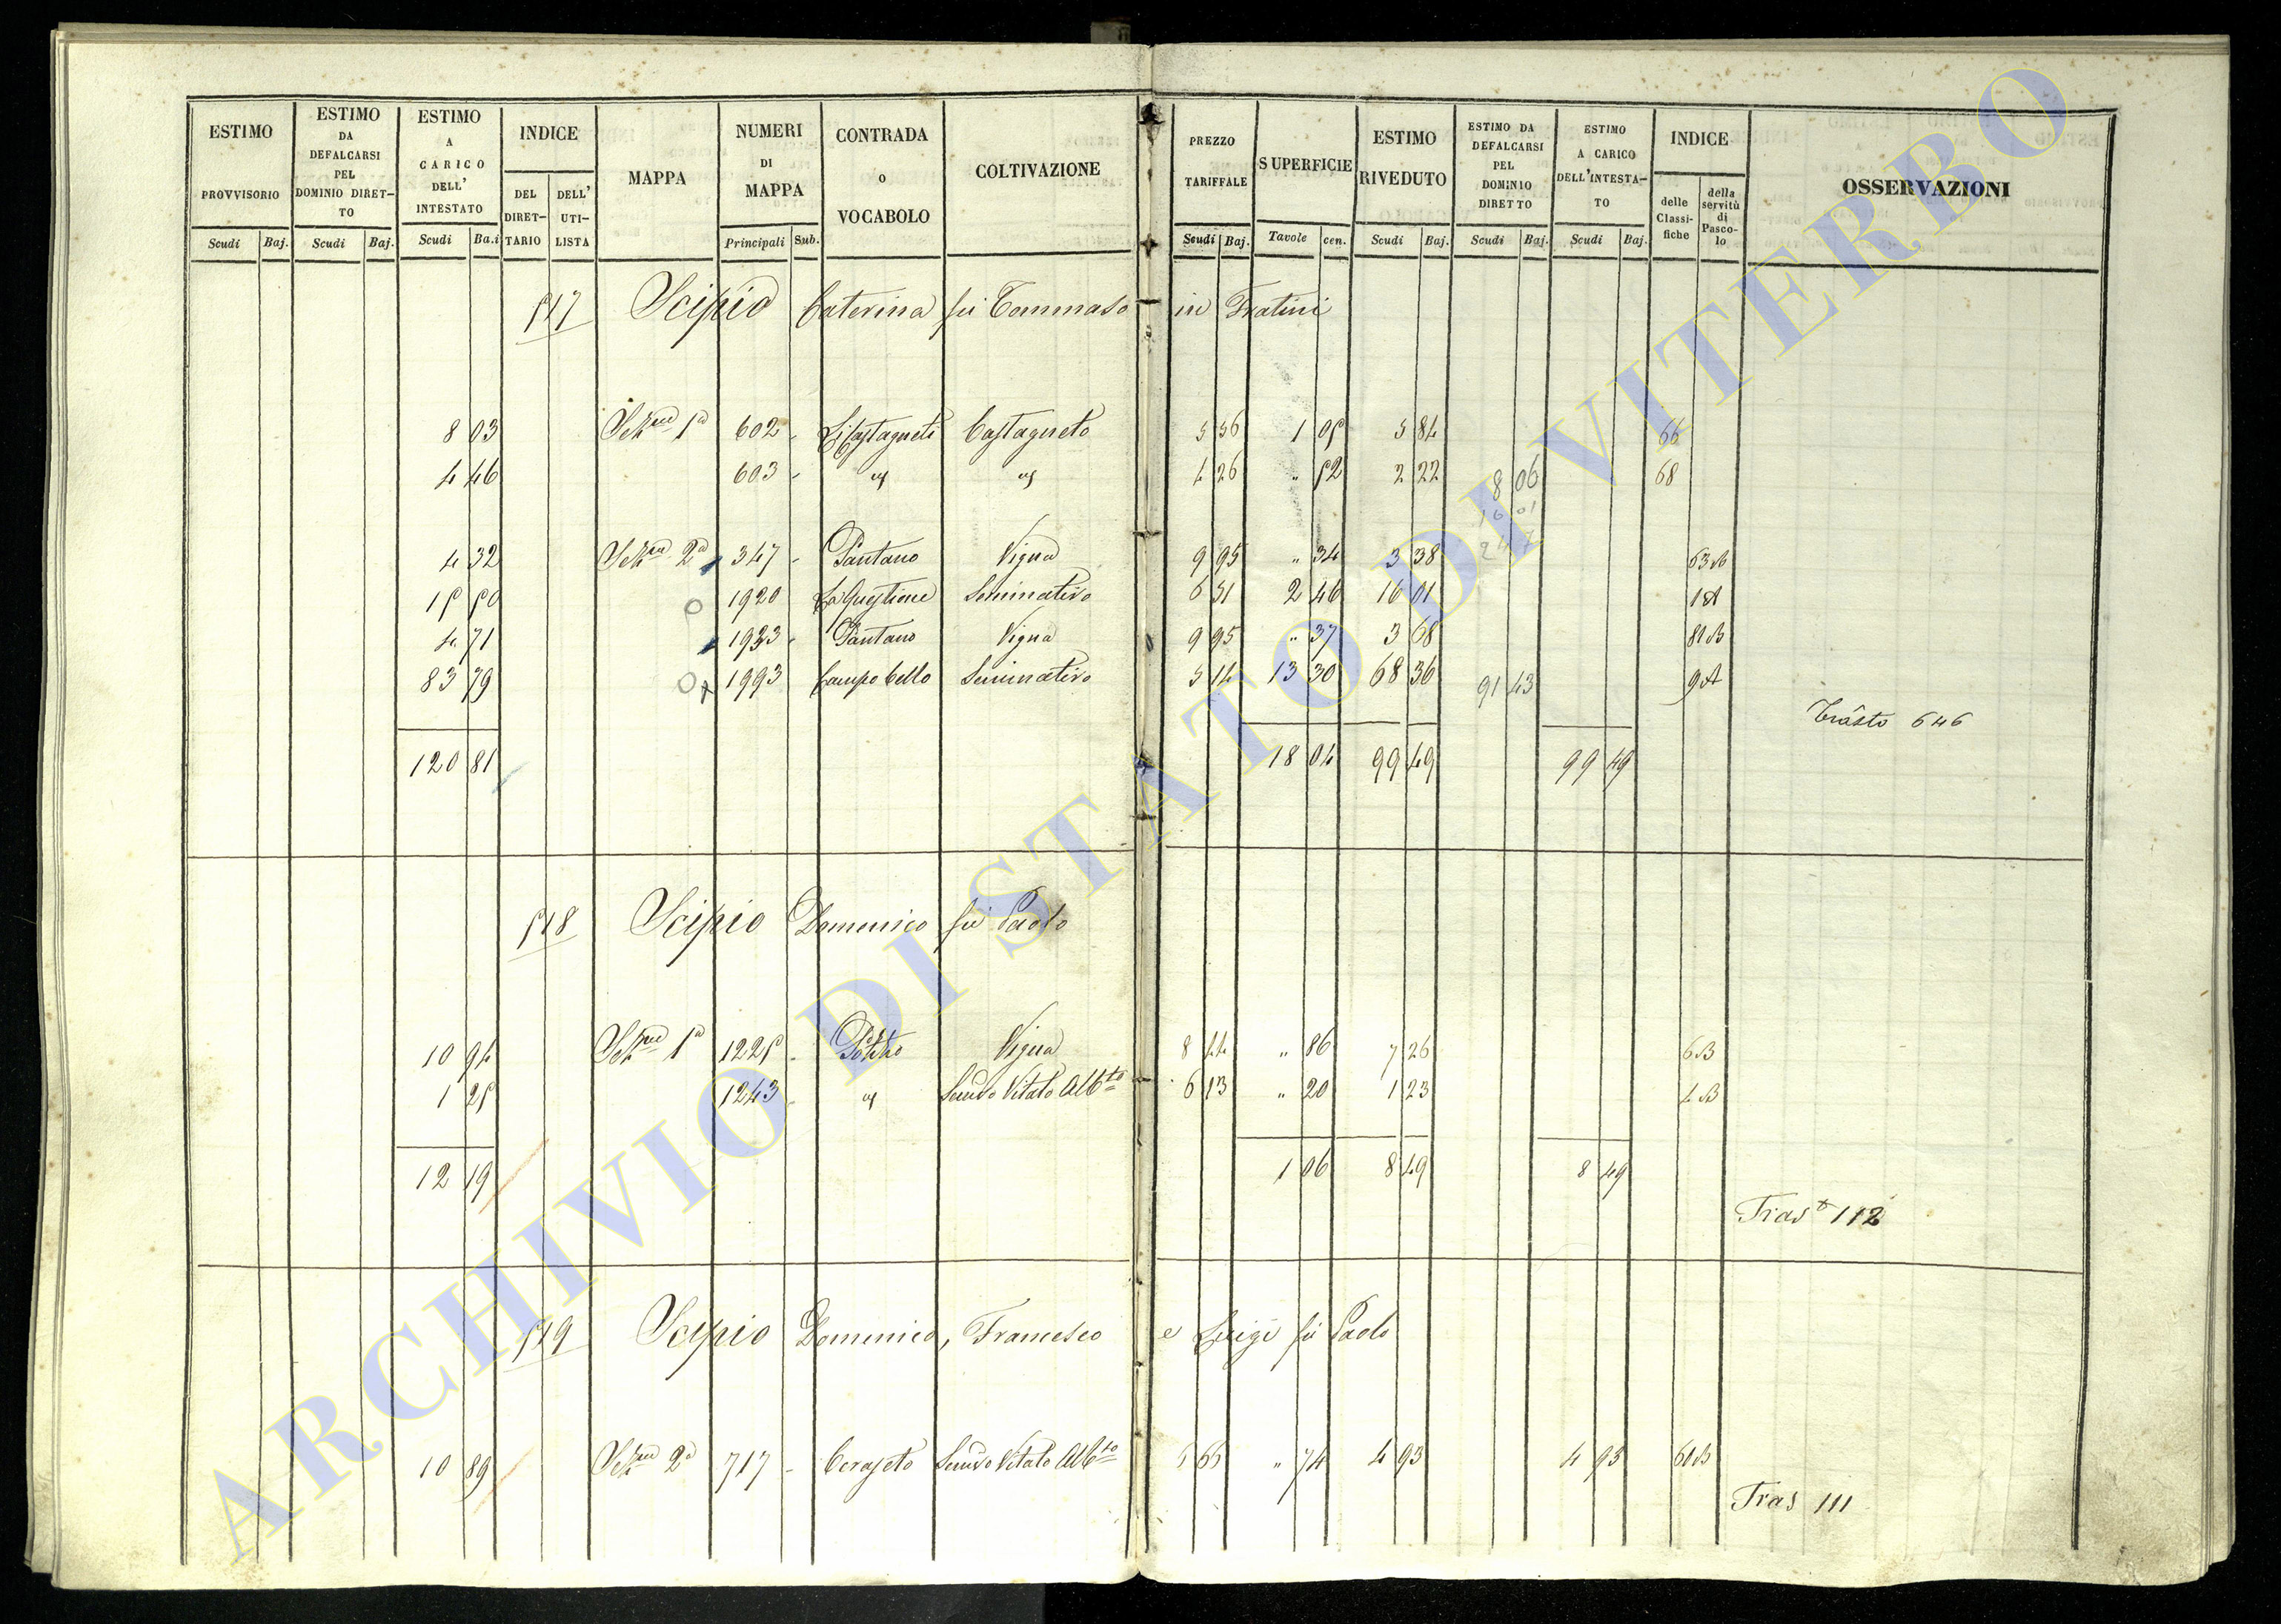 ESTIMO PROVVISORIO Scudi Baj.
ESTIMO DA DEFALCARSI PEL DOMINIO DIRET-TO Scudi Baj.
ESTIMO A CARICO DELL' INTESTATO Scudi Ba.i
INDICE DEL DIRET-TARIO DELL' UTI-LISTA
MAPPA
NUMERI DI MAPPA Principali Sub.
CONTRADA O VOCABOLO
COLTIVAZIONE
PREZZO TARIFFALE Scudi Baj.
SUPERFICIE Tavole cen.
ESTIMO RIVEDUTO Scudi Baj.
ESTIMO DA DEFALCARSI PEL DOMINIO DIRETTO Scudi Baj.
ESTIMO A CARICO DELL'INTESTA-TO Scudi Baj.
INDICE delle Classi-fiche della servitù di Pasco-lo
OSSERVAZIONI
517 Scipio Caterina fu Tommaso in Fratini
8 03 Sezne 1a 602 - Li Castagneti Castagneto 5 56 1 05 5 84 66
4 46 603 - " " 4 26 " 52 2 22 8 06 68
16 01
4 32 Sezne 2a 347 - Pantano Vigna 9 95 " 34 3 38 24 7 63 B
15 50 1920 La Guglione Seminativo 6 51 2 46 16 01 1 A
4 71 1923 - Pantano Vigna 9 95 " 37 3 68 81 B
83 79 1993 Campo bello Seminativo 5 14 13 30 68 36 91 43 9 A
Trasto 646
120 81 18 04 99 49 99 49
518 Scipio Domenico fu Paolo
10 94 Sezne 1a 1225 - Vigna 8 44 " 86 7 26 6 B
1 25 1243 - " Semvo Vitato Albto 6 13 " 20 1 23 4 B
12 19 1 06 8 49 8 49
Trast 112
519 Scipio Domenico, Francesco e Luigi fu Paolo
10 89 Sezne 2a 717 - Ceraseto Semvo Vitato Albto 6 66 " 74 4 93 4 93 60 B
Tras 111
ARCHIVIO DI STATO DI VITERBO